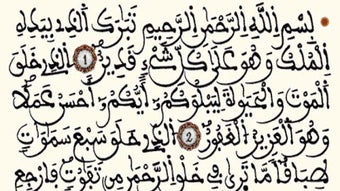 بِسْمِ اللَّهِ الرَّحْمَٰنِ الرَّحِيمِ تَبَٰرَكَ الَّذِي بِيَدِهِ
الْمُلْكُ وَهُوَ عَلَىٰ كُلِّ شَيْءٍ قَدِيرٌ 1 الَّذِي خَلَقَ
الْمَوْتَ وَالْحَيَوٰةَ لِيَبْلُوَكُمُۥ أَيُّكُمُۥ أَحْسَنُ عَمَلًا
وَهُوَ الْعَزِيزُ الْغَفُورُ 2 الَّذِي خَلَقَ سَبْعَ سَمَٰوَٰتٍ
طِبَاقًا مَّا تَرَىٰ فِي خَلْقِ الرَّحْمَٰنِ مِن تَفَٰوُتٍ فَارْجِعِ